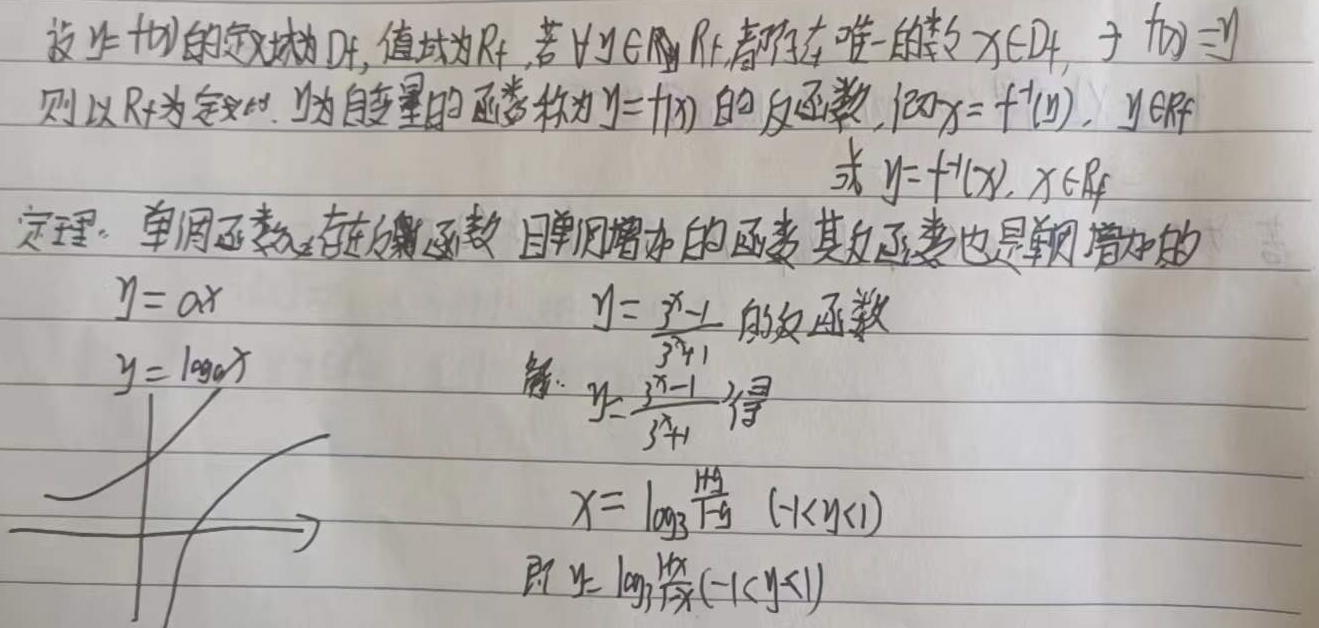 设 y=f(x)的定义域为Df, 值域为Rf, 若∀y∈Rf,都存在唯一的数x∈Df, ∋ f(x)=y
则以Rf为定义域. y为自变量的函数称为y=f(x) 的反函数, 记为x=f⁻¹(y), y∈Rf
或 y=f⁻¹(x), x∈Rf
定理. 单调函数存在反函数 且单调增加的函数其反函数也是单调增加的
y=ax
y=logax
y=(3ˣ-1)/(3ˣ+1) 的反函数
解: y=(3ˣ-1)/(3ˣ+1) 得
x=log₃ (1+y)/(1-y) (-1<y<1)
即 y=log₃ (1+x)/(1-x) (-1<y<1)